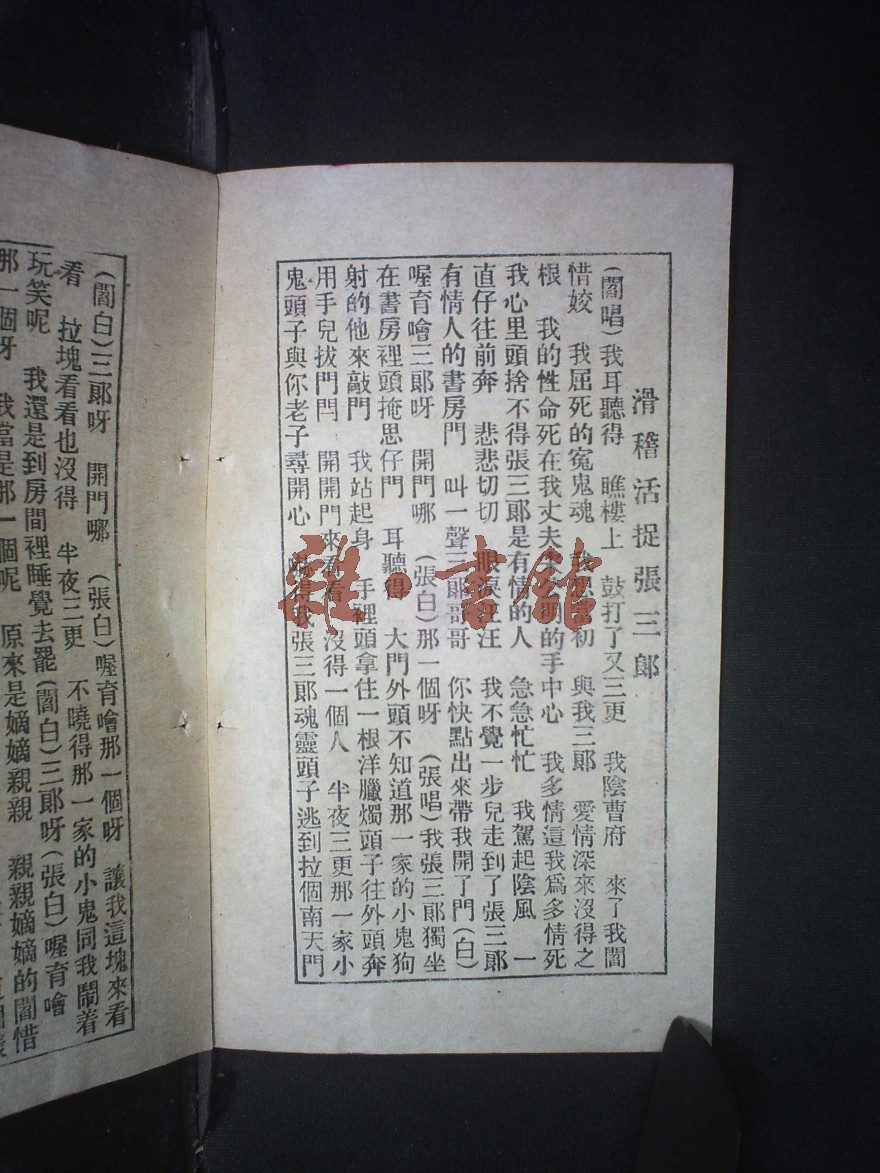 滑稽活捉張三郎
(閻唱)我耳聽得　瞧樓上　鼓打了又三更　我陰曹府　來了我閻
惜姣　我屈死的寃鬼魂　我想當初　與我三郎　愛情深來沒得之
根　我的性命死在我丈夫宋公明的手中心　我多情這我爲多情死
我心里頭捨不得張三郎是有情的人　急急忙忙　我駕起陰風　一
直仔往前奔　悲悲切切　眼淚汪汪　我不覺一步兒走到了張三郎
有情人的書房門　叫一聲三郎哥哥　你快點出來帶我開了門(白)
喔育噲三郎呀　開門哪　(張白)那一個呀　(張唱)我張三郎獨坐
在書房裡頭掩思仔門　耳聽得　大門外頭不知道那一家的小鬼狗
射的他來敲門　我站起身　手裡頭拿住一根洋臘燭頭子往外頭奔
用手兒拔門閂　開開門來看看　沒得一個人　半夜三更那一家小
鬼頭子與你老子尋開心　嚇得我張三郎魂靈頭子逃到拉個南天門
(閻白)三郎呀　開門哪　(張白)喔育噲那一個呀　讓我這塊來看
看　拉塊看看也沒得　半夜三更　不曉得那一家的小鬼同我鬧着
玩笑呢　我還是到房間裡睡覺去罷(閻白)三郎呀(張白)喔育噲
那一個呀　我當是那一個呢　原來是嫡嫡親親　親親嫡嫡的閻惜
雅·書館